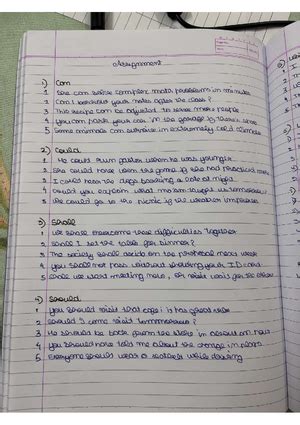 Assignment
1) Can
1 She can solve complex math problems in minutes
2 Can I borrow your notes after the class?
3 This recipe can be adjusted to serve more people
4 You can park your car in the garage
5 Some animals can survive in extremely cold climate
2) Could
1 He could run faster when he was younger.
2 She could have won the game if she had practiced more
3 I could hear the dogs barking late at night
4 Could you explain what
5 We could go to the picnic if the weather improves
3) Shall
1 We shall overcome these difficulties together
2 Shall I set the table for dinner?
3 The society shall on the next week
4 You shall not pass without showing your I.D card
5 Shall we start meeting now, or
4) Should
1 You should visit that cafe
2 Should I come visit tommorrow?
3 He should be back from the store in about an hour
4 You should have told me about the change in plans
5 Everyone should wear a seatbelt while driving